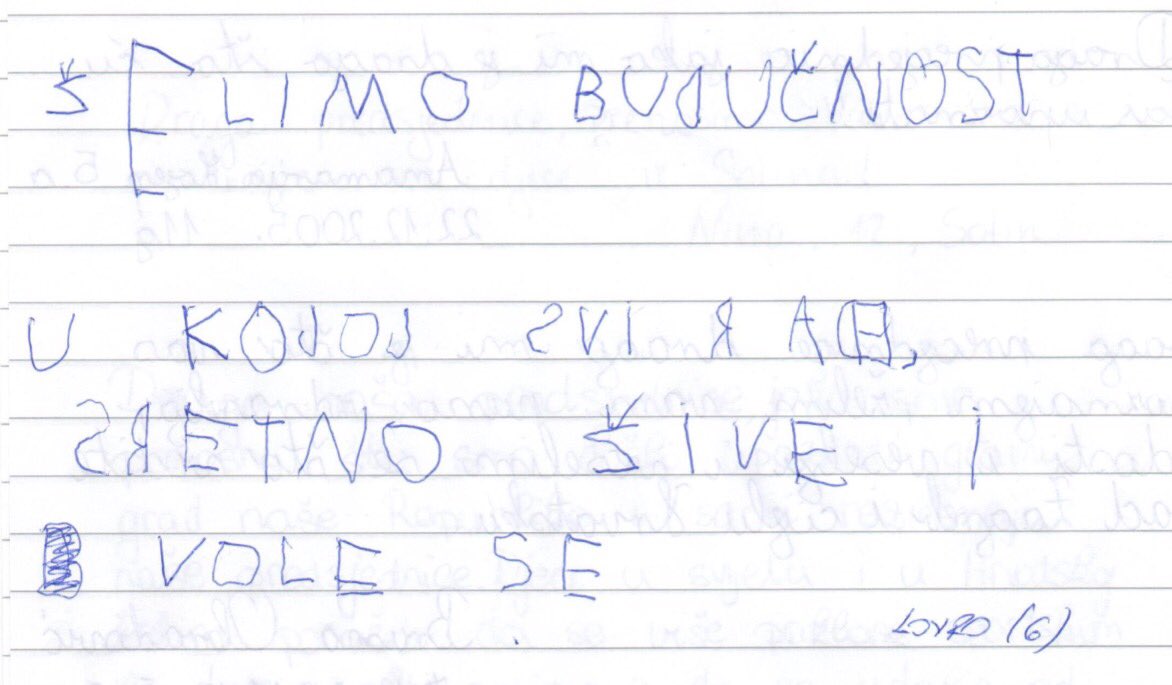 ŽELIMO BUDUČNOST
U KOJOJ SVI RADE,
SRETNO ŽIVE I
VOLE SE
LOVRO (6)